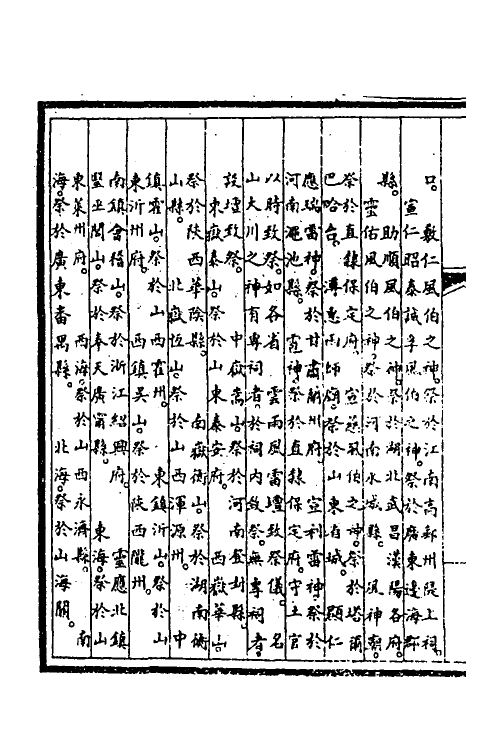 口。　敷仁風伯之神。祭於江南高郵州隄上祠。
宣仁昭泰誠孚風伯之神。祭於廣東邊海郡
縣。　助順風伯之神。祭於湖北武昌漢陽各府。
靈佑風伯之神。祭於河南永城縣。　風神廟。
祭於直隸保定府。　宣慈風伯之神。祭於塔爾
巴哈台。　溥惠雨師廟。祭於山東省城。　顯仁
應瑞雷神。祭於甘肅蘭州府。　宣利雷神。祭於
河南澠池縣。　雹神。祭於直隸保定府。守土官
以時致祭。如各省　雲雨風雷壇致祭儀。　名
山大川之神有專祠者。於祠內致祭。無專祠者。
設壇致祭。　中嶽嵩山。祭於河南登封縣。
東嶽泰山。祭於山東泰安府。　西嶽華山。
祭於陝西華陰縣。　南嶽衡山。祭於湖南衡
山縣。　北嶽恆山。祭於山西渾源州。　中
鎮霍山。祭於山西霍州。　東鎮沂山。祭於山
東沂州府。　西鎮吳山。祭於陝西隴州。
南鎮會稽山。祭於浙江紹興府。　靈應北鎮
醫巫閭山。祭於奉天廣甯縣。　東海。祭於山
東萊州府。　西海。祭於山西永濟縣。　南
海。祭於廣東番禺縣。　北海。祭於山海關。